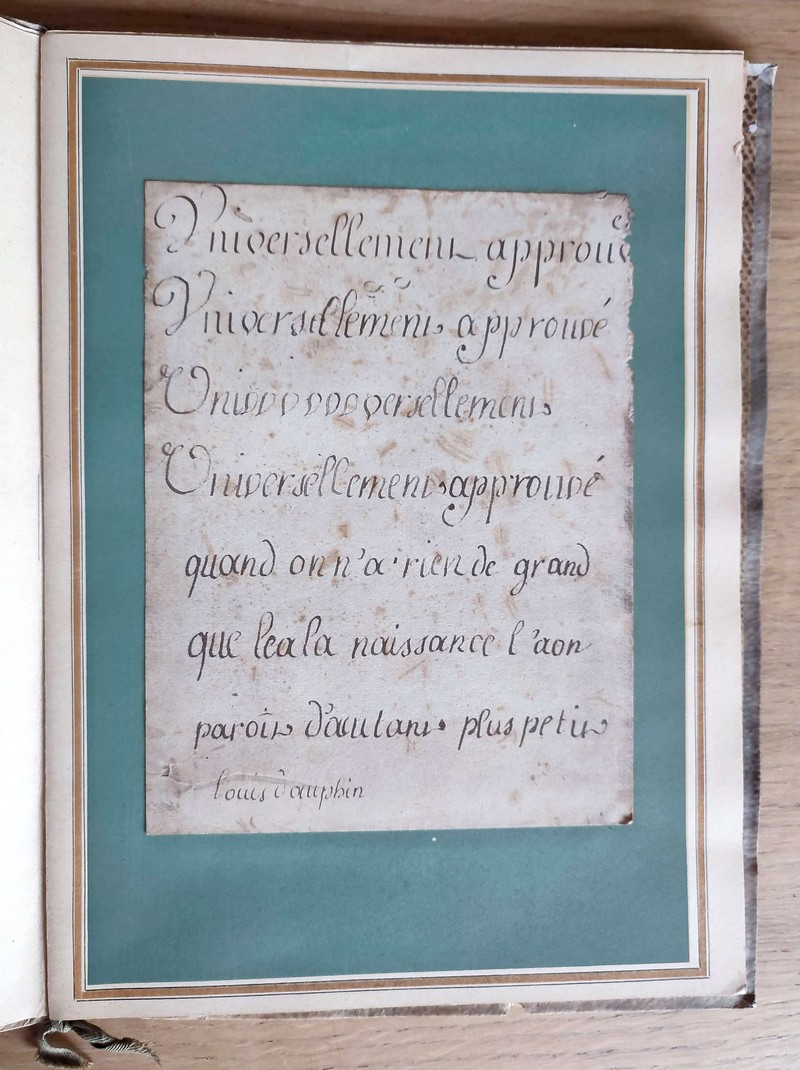 Vniversellement approuv
Vniversellement approuvé
Univvvvvvversellement
Universellement approuvé
quand on n'a rien de grand
que lea la naissance l'aon
paroit d'autant plus petit
louis dauphin